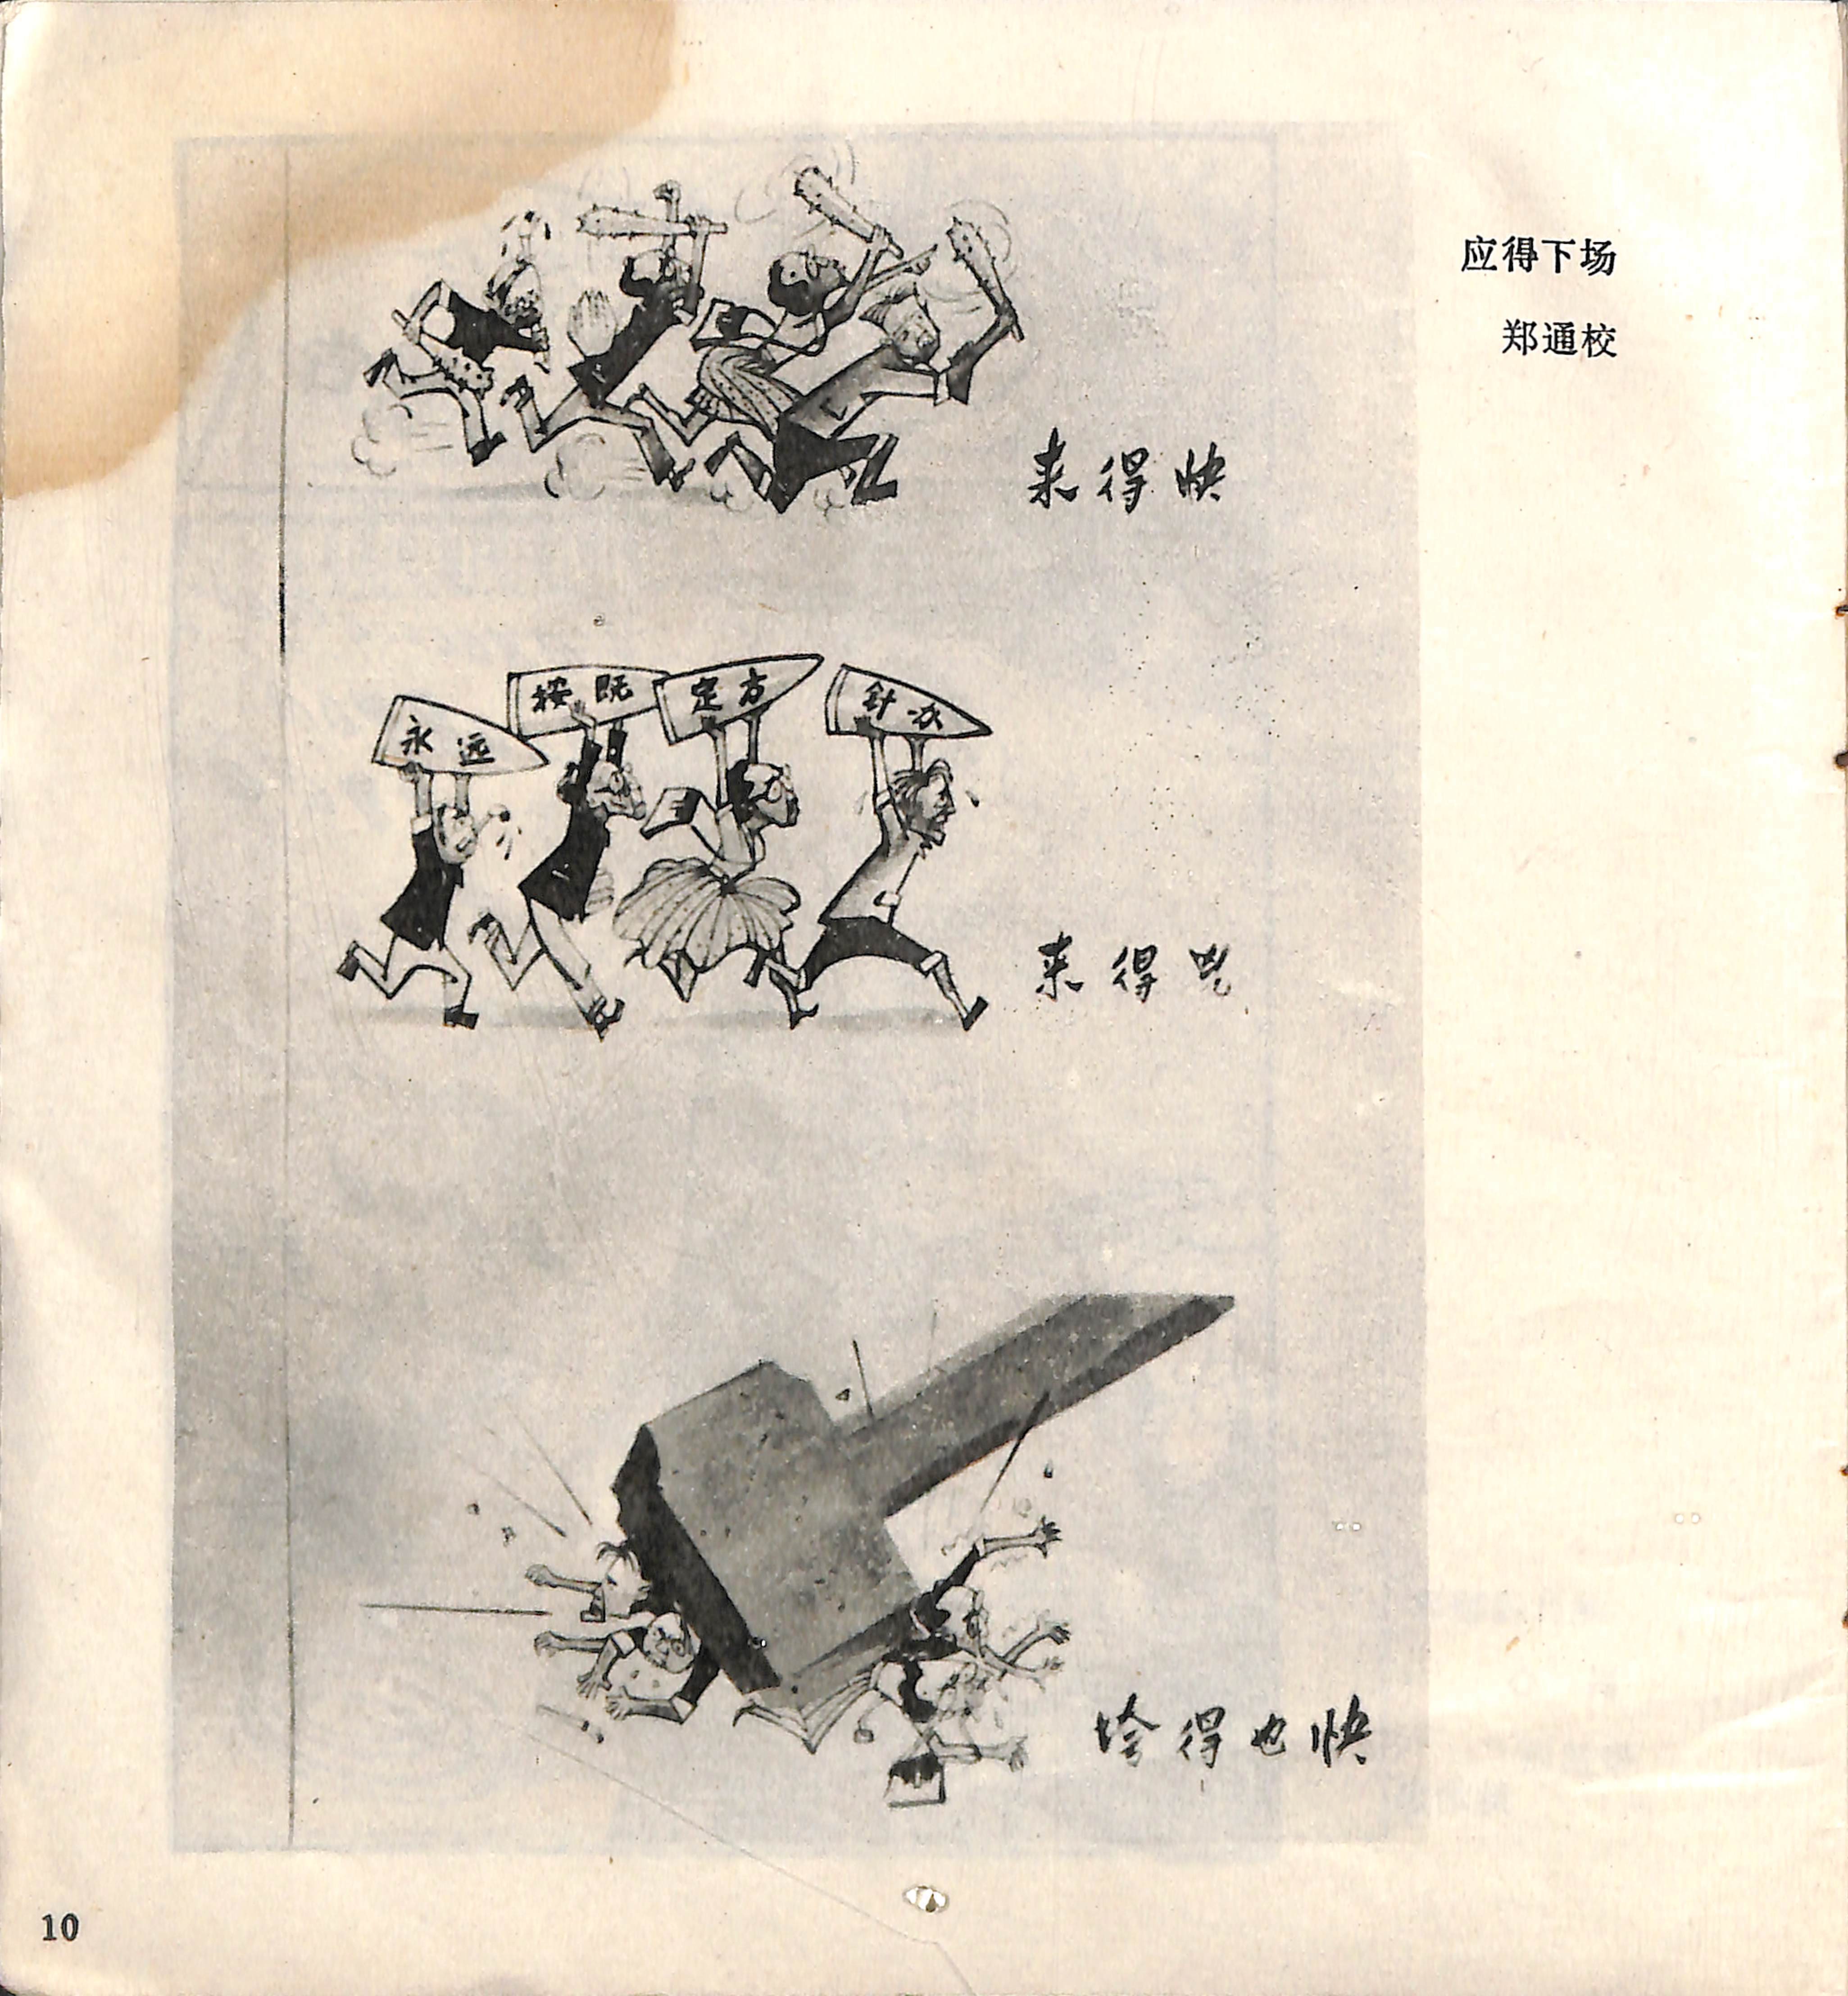 应得下场
郑通校
来得快
永远 按既 定方 针办
来得凶
垮得也快
10